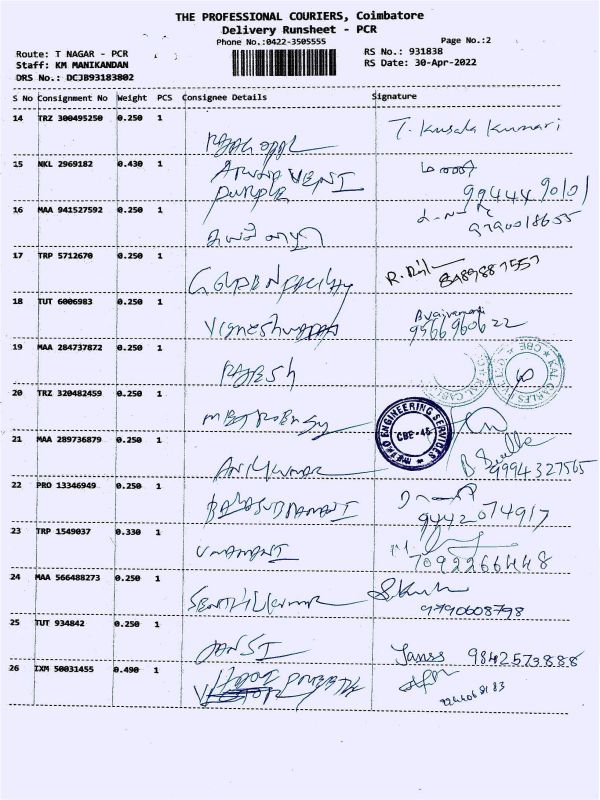 THE PROFESSIONAL COURIERS, Coimbatore
Delivery Runsheet - PCR
Phone No.:0422-3505555
Page No.:2
Route: T NAGAR - PCR
RS No.: 931838
Staff: KM MANIKANDAN
RS Date: 30-Apr-2022
DRS No.: DCJB93183802
S No Consignment No Weight PCS Consignee Details Signature
14 TRZ 300495250 0.250 1
RAJAGOPAL T. Kusala Kumari
15 NKL 2969182 0.430 1
PURPLE 9944490101
16 MAA 941527592 0.250 1
9790018655
17 TRP 5712670 0.250 1
18 TUT 6006983 0.250 1
9566960622
19 MAA 284737872 0.250 1
RAJESH
CBE ★ KAL CABLES
20 TRZ 320482459 0.250 1
METRO ENGINEERING SERVICES ★
CBE-45
21 MAA 289736879 0.250 1
ANILKUMAR 9994327565
22 PRO 13346949 0.250 1
BALASUBRAMANI 9442074917
23 TRP 1549037 0.330 1
UMAMANI 7092266448
24 MAA 566488273 0.250 1
SENTHILKUMAR 9790608798
25 TUT 934842 0.250 1
JANSI Janss 9842573888
26 IXM 50031455 0.490 1